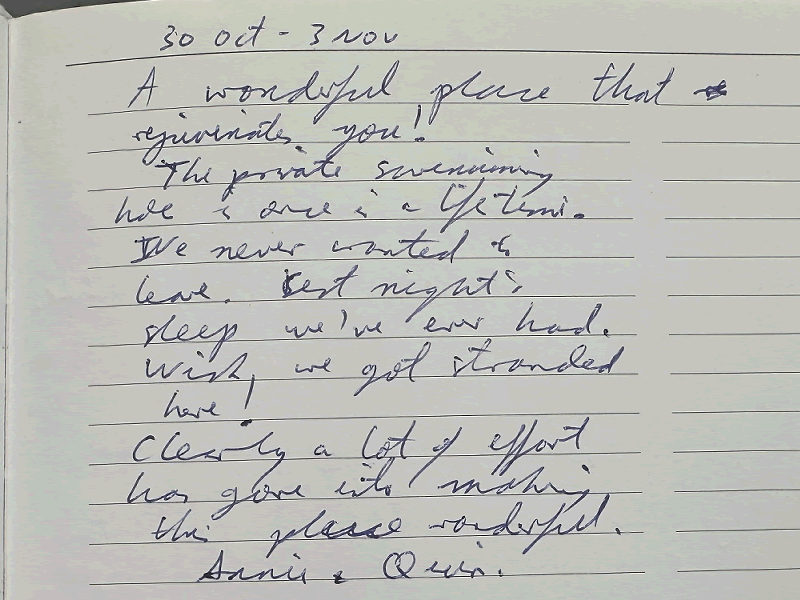 30 Oct - 3 Nov
A wonderful place that
rejuvinates you!
The private swimming
hole is once in a lifetime.
We never wanted to
leave. Best night's
sleep we've ever had.
Wish we got stranded
here!
Clearly a lot of effort
has gone into making
this place wonderful.
Annie &